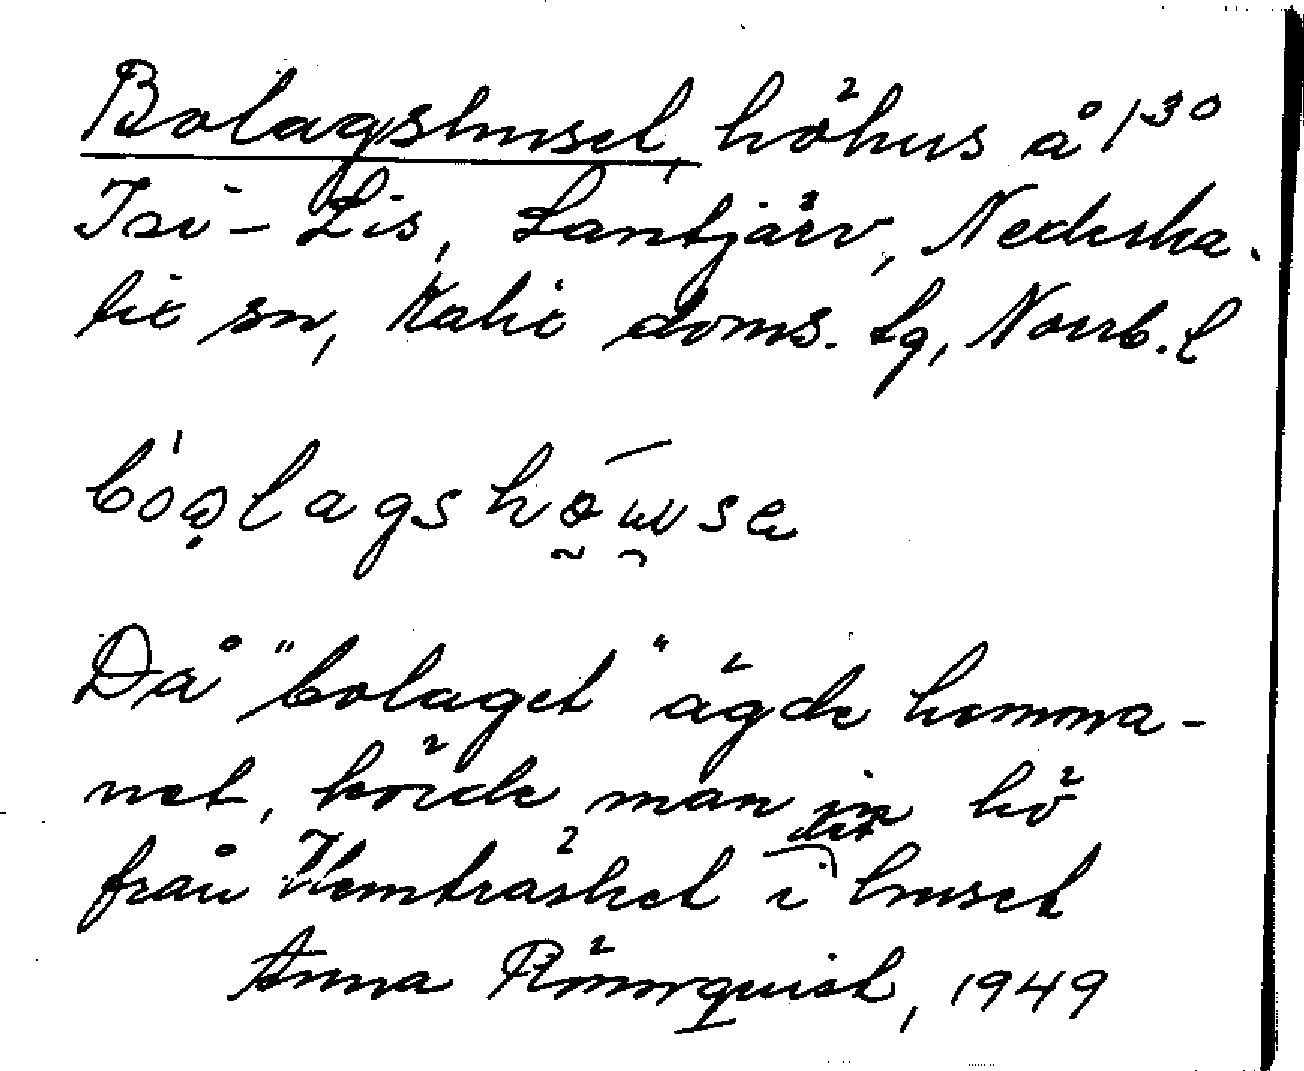 Bolagshuset, höhus å 1³⁰
Isi-Lis, Lantjärv, Nederka-
lix sn, Kalix doms. tg, Norrb. l
Då "bolaget" ägde hemma-
net, körde man in hö
från Hemträsket i det huset
Anna Rönnquist, 1949